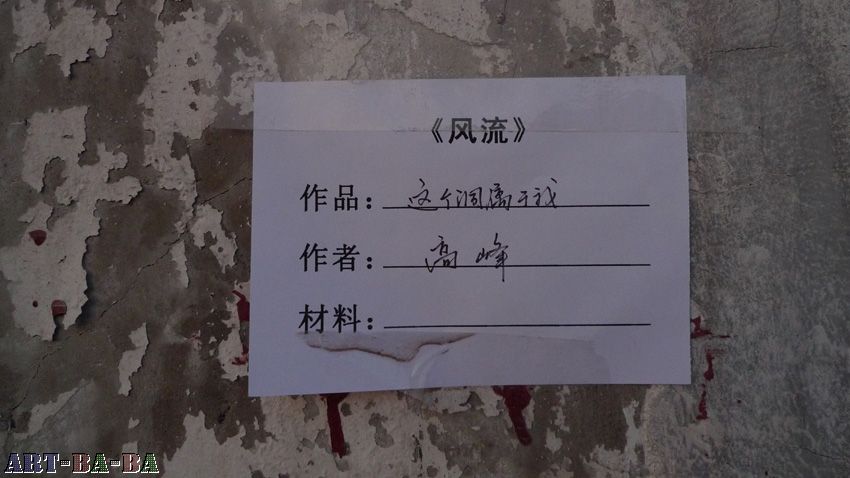 《风流》
作品：这个洞属于我
作者：高峰
材料：
ART-BA-BA